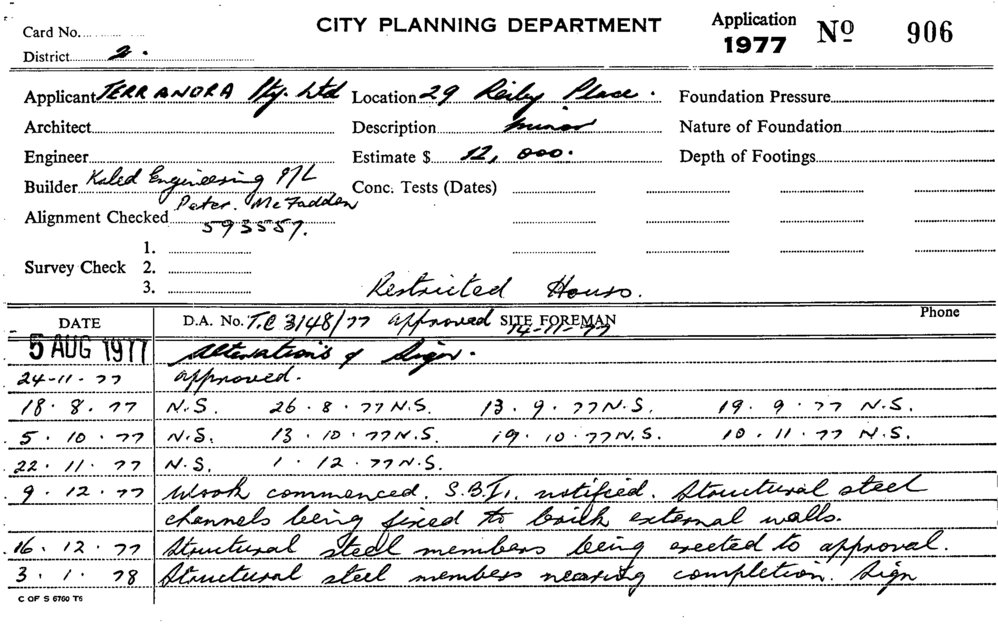 Card No. CITY PLANNING DEPARTMENT Application 1977 No 906
District 2.
Applicant TERRANORA Pty. Ltd Location 29 Reiby Place. Foundation Pressure
Architect Description minor Nature of Foundation
Engineer Estimate $ 12,000. Depth of Footings
Builder Kaled Engineering P/L Conc. Tests (Dates)
Peter. McFadden
Alignment Checked 593557.
1.
Survey Check 2.
3.
Restricted Hours.
DATE D.A. No. T.C 3148/77 approved SITE FOREMAN Phone
14-11-77
5 AUG 1977 Alterations & Sign.
24-11-77 approved.
18.8.77 N.S. 26.8.77 N.S. 13.9.77 N.S. 19.9.77 N.S.
5.10.77 N.S. 13.10.77 N.S. 19.10.77 N.S. 10.11.77 N.S.
22.11.77 N.S. 1.12.77 N.S.
9.12.77 Work commenced. S.B.I. notified. Structural steel
channels being fixed to brick external walls.
16.12.77 Structural steel members being erected to approval.
3.1.78 Structural steel members nearing completion. Sign
C OF S 6760 T6